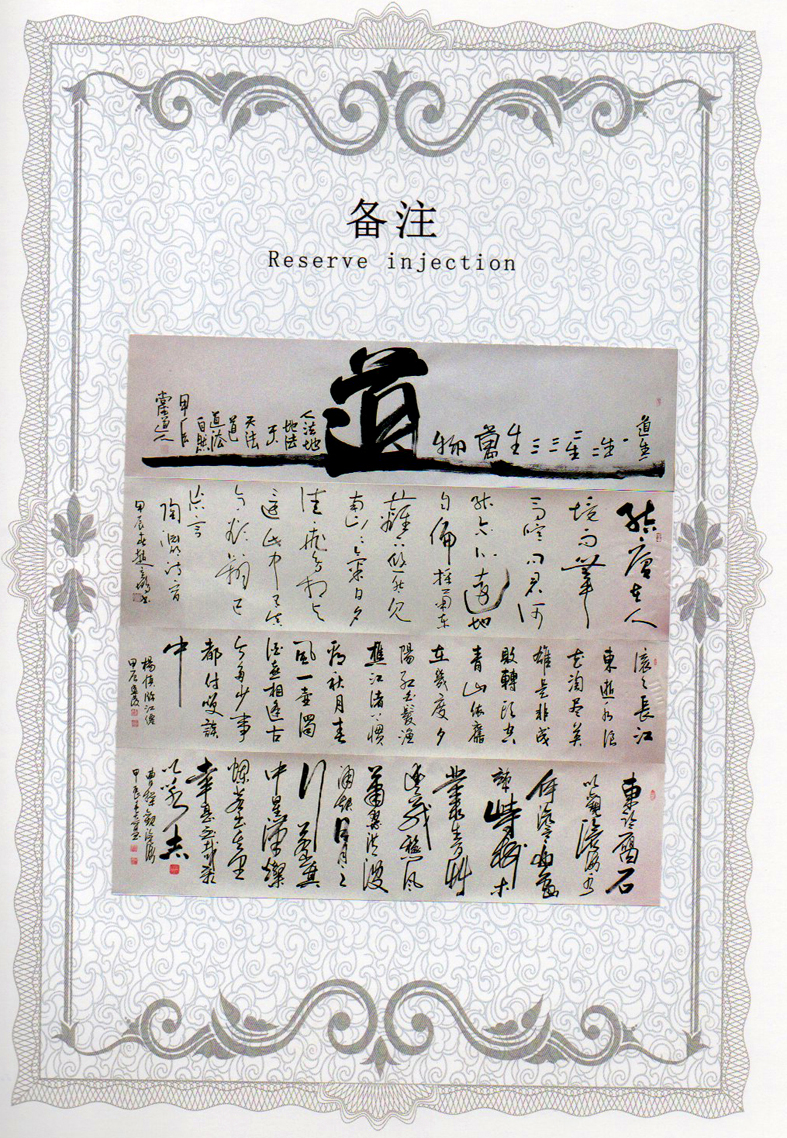 备注
Reserve injection
道生
一一生
二二生
三三
生
萬
物
道
人法地
地法
天
天法
道
道法
自然
甲辰
结庐在人
境而無車
馬喧问君何
能尔心遠地
自偏採菊东
籬下悠然见
南山山气日夕
佳飛鸟相与
還此中有真
意欲辨已
忘言
陶渊明诗
甲辰
滚滚長江
東逝水浪
花淘尽英
雄是非成
敗轉頭空
青山依舊
在幾度夕
陽红白髮漁
樵江渚上慣
看秋月春
風一壺濁
酒喜相逢古
今多少事
都付笑談
中
楊慎临江仙
甲辰
東临碣石
以觀滄海水
何澹澹山島
竦峙樹木
叢生百草
豐茂秋風
蕭瑟洪波
涌起日月之
行若出其
中星漢燦
爛若出其里
幸甚至哉歌
以咏志
曹操觀滄海
甲辰